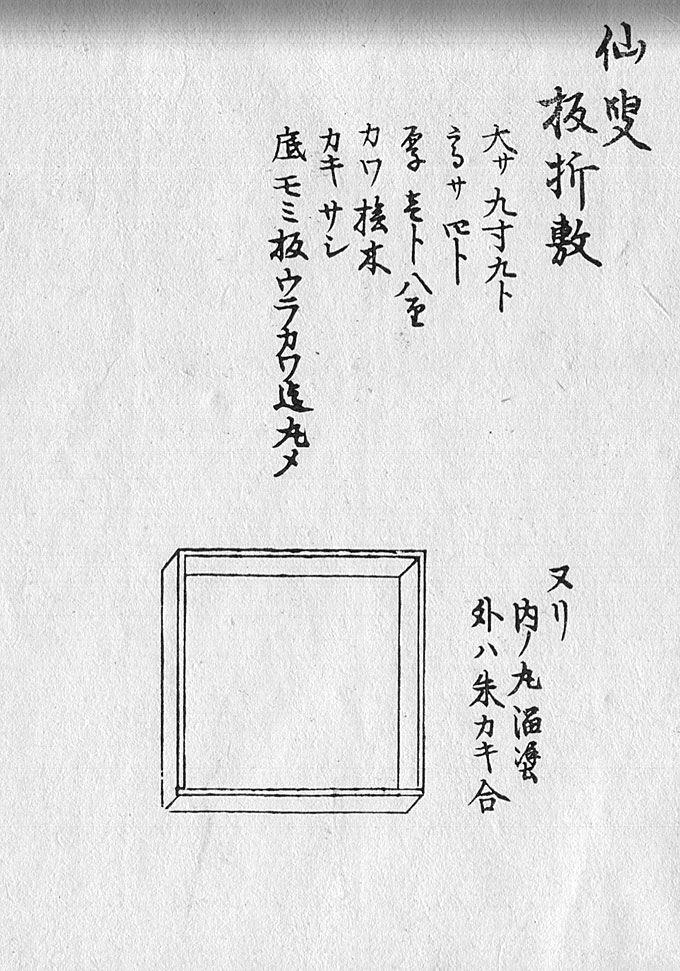 仙叟
板折敷
大サ九寸九ト
高サ四ト
厚壱ト八厘
カワ桧木
カキサシ
底モミ板ウラカワ迄丸メ
ヌリ
内ノ丸溜塗
外ハ朱カキ合